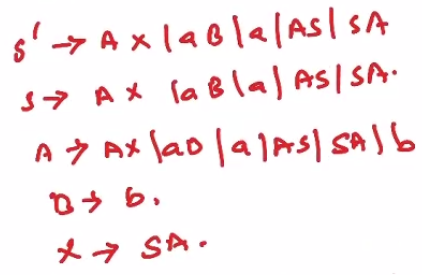 S' → AX | aB | a | AS | SA
S → AX | aB | a | AS | SA.
A → AX | aB | a | AS | SA | b
B → b.
X → SA.